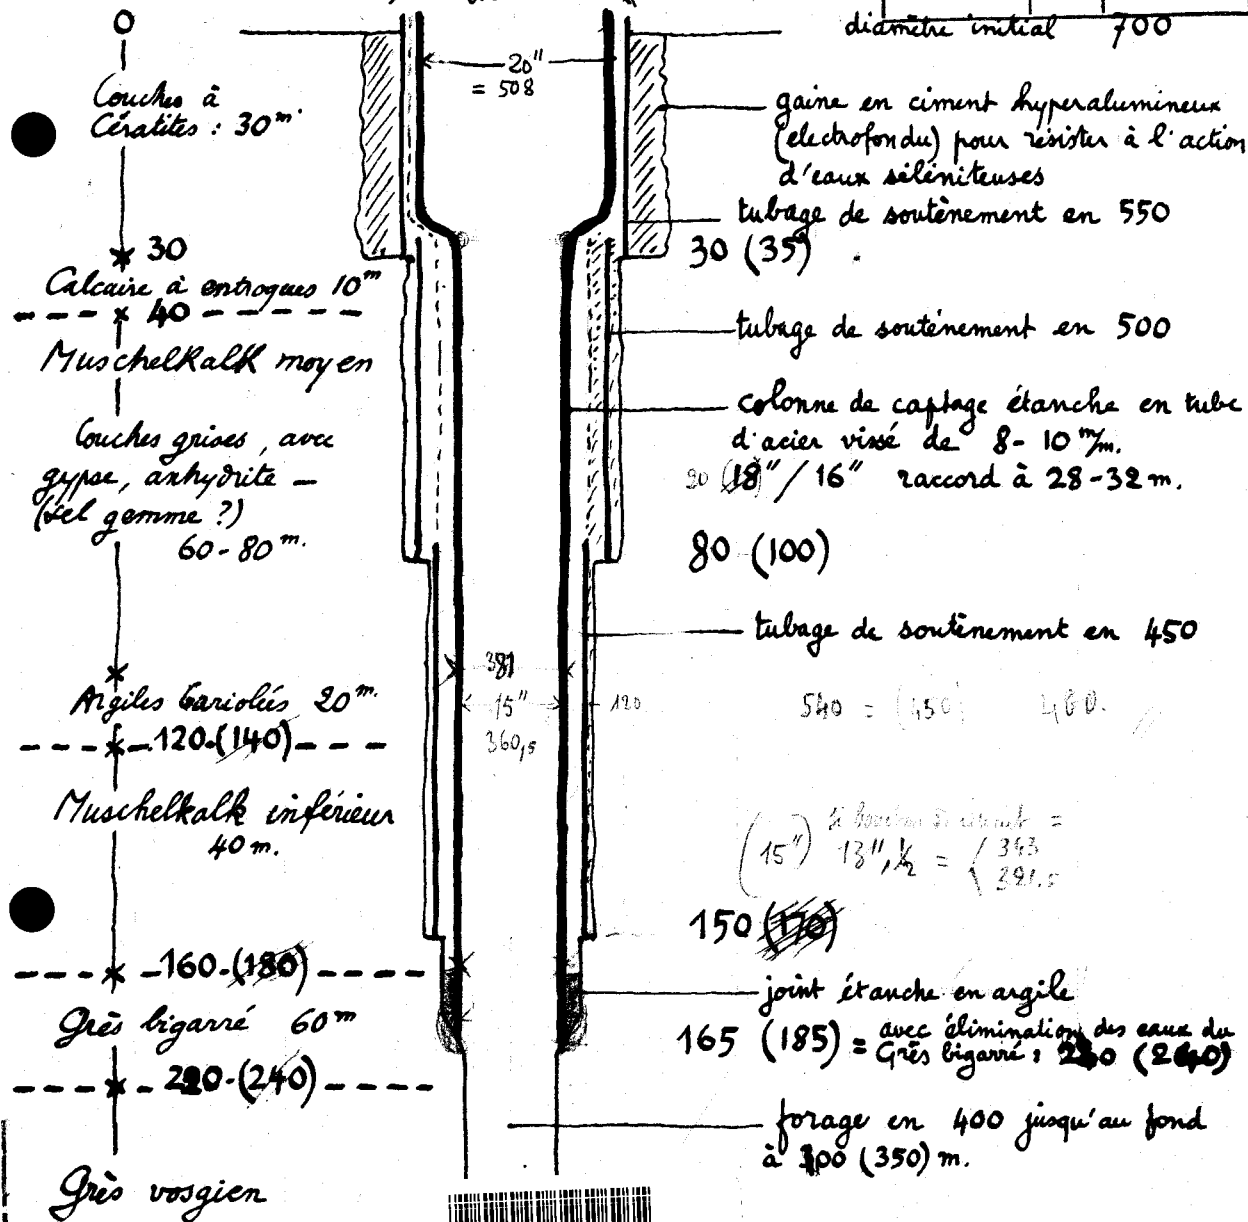 0
Couches à
Cératites : 30 m.
30
Calcaire à entroques 10 m
40
Muschelkalk moyen
Couches grises, avec
gypse, anhydrite –
(sel gemme ?)
60-80 m.
Argiles bariolées 20 m.
120-(140)
Muschelkalk inférieur
40 m.
160-(180)
Grès bigarré 60 m
220-(240)
Grès vosgien
20"
= 508
381
15"
360,5
120
diamètre initial 700
gaine en ciment hyperalumineux
(electrofondu) pour résister à l'action
d'eaux séléniteuses
tubage de soutènement en 550
30 (35)
tubage de soutènement en 500
colonne de captage étanche en tube
d'acier vissé de 8-10 m/m.
20 (18"/16" raccord à 28-32 m.
80 (100)
tubage de soutènement en 450
540 = (450) 480.
(15") 13",1/2 = 343
150 (170)
joint étanche en argile
165 (185) = avec élimination des eaux du
Grès bigarré : (240)
forage en 400 jusqu'au fond
à 300 (350) m.